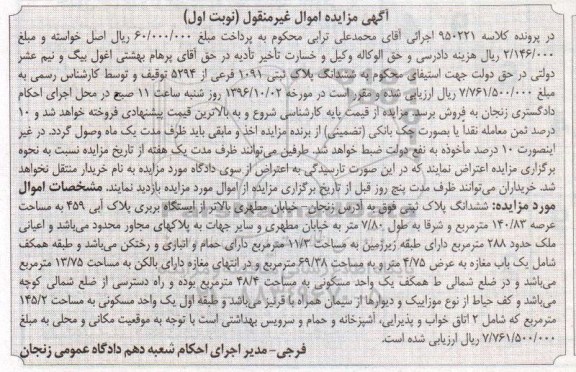 آگهی مزایده اموال غیرمنقول (نوبت اول)
در پرونده کلاسه ۹۵۰۲۲۱ اجرائی آقای محمدعلی ترابی محکوم به پرداخت مبلغ ۶۰/۰۰۰/۰۰۰ ریال اصل خواسته و مبلغ
۲/۱۴۶/۰۰۰ ریال هزینه دادرسی و حق الوکاله وکیل و خسارت تأخیر تأدیه در حق آقای پرهام بهشتی اغول بیگ و نیم عشر
دولتی در حق دولت جهت استیفای محکوم به ششدانگ پلاک ثبتی ۱۰۹۱ فرعی از ۵۲۹۴ توقیف و توسط کارشناس رسمی به
مبلغ ۷/۷۶۱/۵۰۰/۰۰۰ ریال ارزیابی شده و مقرر است در مورخه ۱۳۹۶/۱۰/۰۲ روز شنبه ساعت ۱۱ صبح در محل اجرای احکام
دادگستری زنجان به فروش برسد. مزایده از قیمت پایه کارشناسی شروع و به بالاترین قیمت پیشنهادی فروخته خواهد شد و ۱۰
درصد ثمن معامله نقداً یا بصورت چک بانکی (تضمینی) از برنده مزایده اخذ و مابقی باید ظرف مدت یک ماه وصول گردد. در غیر
اینصورت ۱۰ درصد مأخوذه به نفع دولت ضبط خواهد شد. طرفین می‌توانند ظرف مدت یک هفته از تاریخ مزایده نسبت به نحوه
برگزاری مزایده اعتراض نمایند که در این صورت تارسیدگی به اعتراض از سوی دادگاه مورد مزایده به نام خریدار منتقل نخواهد
شد. خریداران می‌توانند ظرف مدت پنج روز قبل از تاریخ برگزاری مزایده از اموال مورد مزایده بازدید نمایند. مشخصات اموال
مورد مزایده: ششدانگ پلاک ثبتی فوق به آدرس زنجان- خیابان مطهری بالاتر از ایستگاه بربری پلاک آبی ۴۵۹ به مساحت
عرصه ۱۴۰/۸۳ مترمربع و شرقا به طول ۷/۸۰ متر به خیابان مطهری و سایر جهات به پلاکهای مجاور محدود می‌باشد و اعیانی
ملک حدود ۲۸۸ مترمربع دارای طبقه زیرزمین به مساحت ۱۱/۳ مترمربع دارای حمام و انباری و رختکن می‌باشد و طبقه همکف
شامل یک باب مغازه به عرض ۴/۷۵ مترو به مساحت ۶۹/۳۸ مترمربع و در انتهای مغازه دارای بالکن به مساحت ۱۳/۷۵ مترمربع
می‌باشد و در ضلع شمالی ط همکف یک واحد مسکونی به مساحت ۴۸/۴ مترمربع بوده و راه دسترسی از ضلع شمالی کوچه
می‌باشد و کف حیاط از نوع موزاییک و دیوارها از سیمان همراه با قرنیز می‌باشد و طبقه اول یک واحد مسکونی به مساحت ۱۴۵/۲
مترمربع که شامل ۲ اتاق خواب و پذیرایی، آشپزخانه و حمام و سرویس بهداشتی است با توجه به موقعیت مکانی و محلی به مبلغ
۷/۷۶۱/۵۰۰/۰۰۰ ریال ارزیابی شده است.
فرجی- مدیر اجرای احکام شعبه دهم دادگاه عمومی زنجان